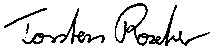 Torsten Roscher